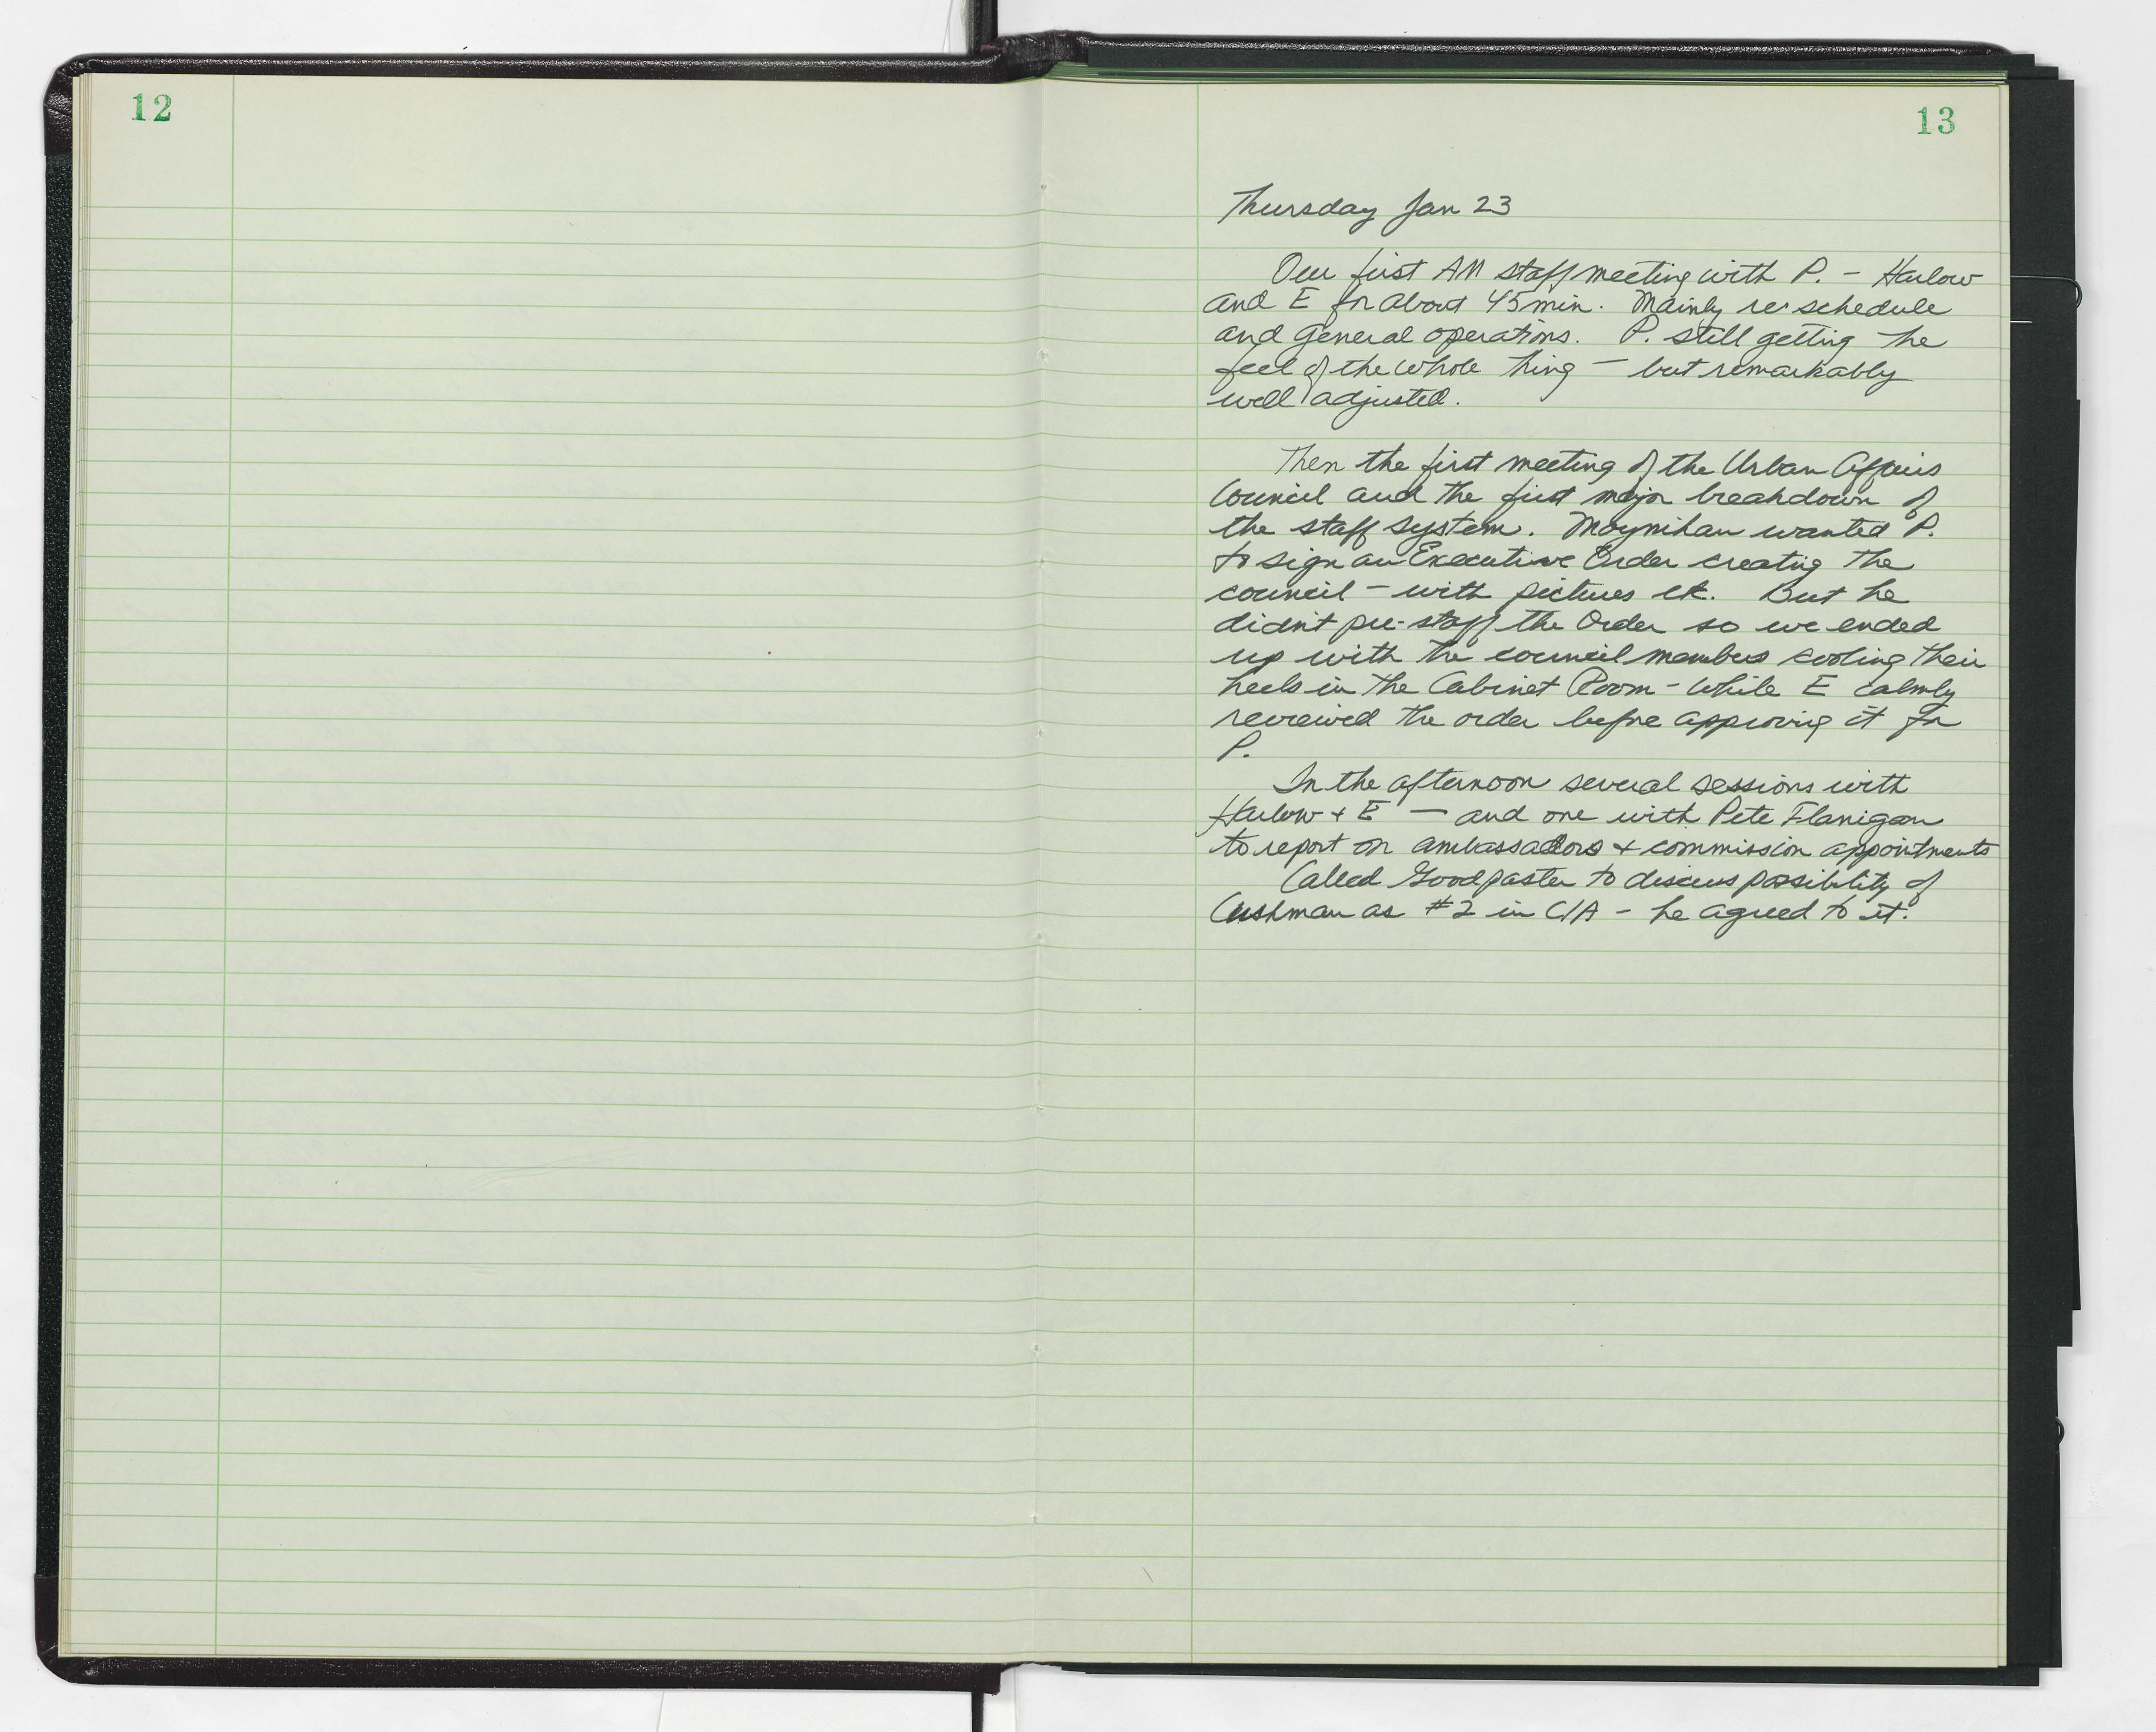 12
13
Thursday Jan 23
Our first AM staff meeting with P. - Harlow
and E for about 45 min. Mainly re: schedule
and general operations. P. still getting the
feel of the whole thing - but remarkably
well adjusted.
Then the first meeting of the Urban Affairs
Council and the first major breakdown of
the staff system. Moynihan wanted P.
to sign an Executive Order creating the
council - with pictures etc. But he
didn't pre-staff the Order so we ended
up with the council members cooling their
heels in the Cabinet Room - while E calmly
reviewed the order before approving it for
P.
In the afternoon several sessions with
Harlow + E - and one with Pete Flanigan
to report on ambassadors + commission appointments
Called Goodpaster to discuss possibility of
Cushman as #2 in CIA - he agreed to it.